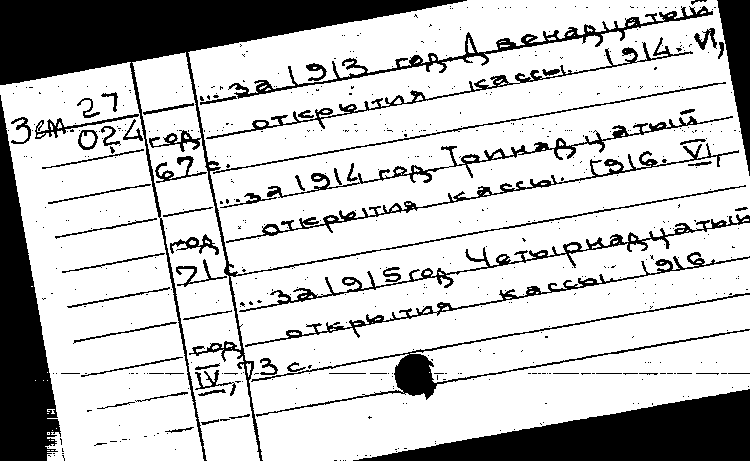 ...за 1913 год. Двенадцатый
Зем. 27
024
год
открытия кассы. 1914. VI,
67 с.
...за 1914 год. Тринадцатый
год
открытия кассы. 1916. VI,
71 с.
...за 1915 год. Четырнадцатый
год
открытия кассы. 1916.
IV, 73 с.